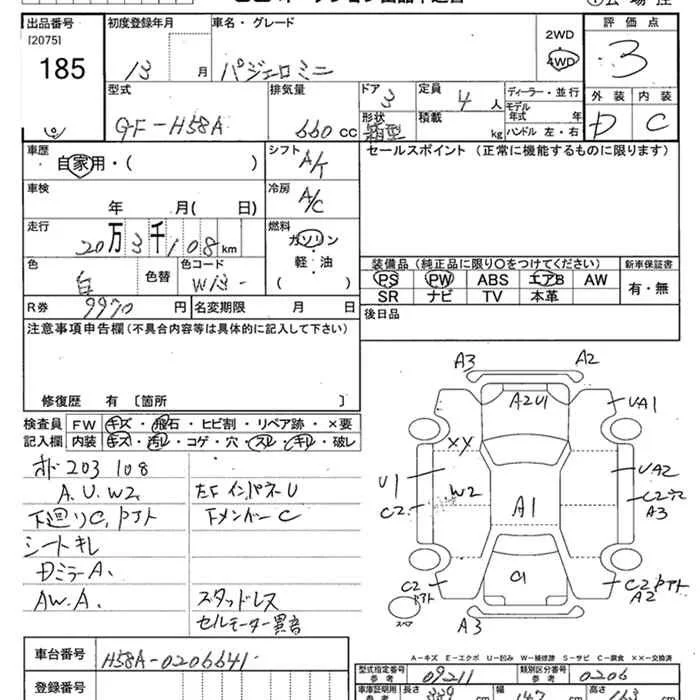 出品番号 初度登録年月 車名・グレード 評価点
[2075]
185 13 月 パジェロミニ 2WD 4WD 3
型式 排気量 ドア 定員 ディーラー・並行 外装 内装
GF-H58A 660 cc 3 4 人 モデル年式 年 D C
形状 箱型 積載 kg ハンドル 左・右
車歴 シフト セールスポイント (正常に機能するものに限ります)
自家用・( ) A/T
車検 冷房
年 月( 日) A/C
走行 燃料
20万3千108km ガソリン
軽・油
( )
色 色替 色コード
白 W13-
装備品 (純正品に限り○をつけてください) 新車保証書
PS PW ABS エアB AW 有・無
SR ナビ TV 本革
R券 9970 円 名変期限 月 日 後日品
注意事項申告欄 (不具合内容等は具体的に記入して下さい)
修復歴 有 [箇所 ]
検査員 FW キズ・飛石・ヒビ割・リペア跡・×要
記入欄 内装 キズ・汚レ・コゲ・穴・スレ・キレ・破レ
オド 203108
A.U.W2 左Fインパネ U
下廻りC,アト 下メンバー C
シートキレ
Dミラー A.
AW.A. スタッドレス
セルモーター異音
A3 A2
A2U1 UA1
XX
U1 W2 UA2
C2 A1 C2穴 A3
C1
C2 C2 A2
スペア A3
A-キズ E-エクボ U-凹み W-補修跡 S-サビ C-腐食 XX-交換済
車台番号 H58A-0206641
型式指定番号 参考 09211 類別区分番号 参考 0206
登録番号 車庫証明用 参考 長さ 339 cm 幅 147 cm 高さ 163 cm